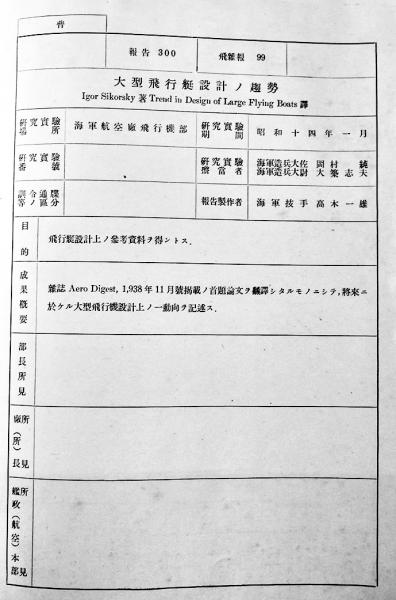 普
報告 300 飛雜報 99
大型飛行艇設計ノ趨勢
Igor Sikorsky 著 Trend in Design of Large Flying Boats 譯
研究實驗場所 海軍航空廠飛行機部 研究實驗期間 昭和十四年一月
研究實驗番號 研究實驗擔當者 海軍造兵大佐 岡村 純
海軍造兵大尉 大築志夫
訓令通牒等ノ區分 報告製作者 海軍技手 高木一雄
目的 飛行艇設計上ノ參考資料ヲ得ントス.
成果概要 雜誌 Aero Digest, 1,938年11月號揭載ノ首題論文ヲ飜譯シタルモノニシテ, 將來ニ
於ケル大型飛行機設計上ノ一動向ヲ記述ス.
部長所見
廠(所)長所見
艦政(航空)本部所見